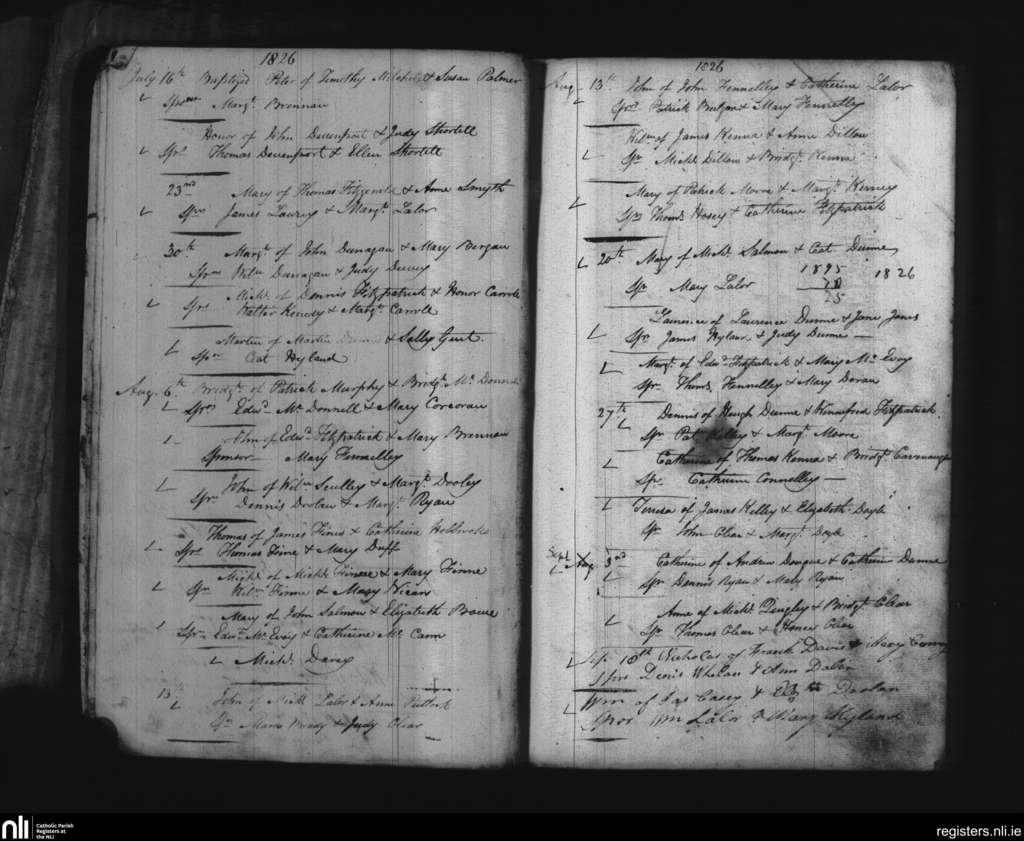 1826
July 16th Baptized Peter of Timothy Mitchel & Susan Palmer
Margt. Brennan
Honor of John Davenport & Judy Shortell
Sprs Thomas Davenport & Ellen Shortell
23rd Mary of Thomas Fitzgerald & Anne Smyth
Sprs James & Margt. Lalor
30th Margt. of John Dunagan & Mary Bergan
Wilm Dunagan & Judy
Michl. of Dennis Fitzpatrick & Honor Carroll
Sprs Walter Kenedy & Margt. Carroll
Martin of Martin & Sally Gent.
Cat Hyland
Aug. 6th Bridgt. of Patrick Murphy & Bridgt. Mc Donnell
Sprs Edwd. Mc Donnell & Mary Corcoran
John of Edwd. Fitzpatrick & Mary Brennan
Sponsor Mary Fennelley
John of Wilm Sculley & Margt. Dooley
Sprs Dennis Doolan & Margt. Ryan
Thomas of James & Catherine
Sprs Thomas & Mary Duff
Michl. of Michl. & Mary Finne
Spr Wilm Finne & Mary
Mary of John Salmon & Elizabeth Bowe
Sprs Edwd. Mc Evoy & Catherine Mc Cann
Michl. Davey
13 John of Michl Lalor & Anne
& Judy Clear
1826
Aug. 13th John of John Fennelley & Catherine Lalor
Sprs Patrick & Mary Fennelley
Wilm of James Kenna & Anne Dillon
Spr Michl. Dillon & Bridgt. Kenna
Mary of Patrick Moore & Margt. Kerney
Sprs Thomas Hosey & Catherine Fitzpatrick
20th Mary of Michl. Salmon & Cat. Dunne
1895 1826
Spr Mary Lalor
Laurence of Laurence Dunne & Jane Jones
Spr James Hyland & Judy Dunne
Margt. of Edwd. Fitzpatrick & Mary Mc Evoy
Spr Thoms. Fennelley & Mary Doran
27th Dennis of Hugh Dunne & Winnifred Fitzpatrick
Spr Pat Kelley & Margt. Moore
Catherine of Thomas Kenna & Bridgt Cavenaugh
Spr. Cathrine Connelley
Teresa of James Kelley & Elizabeth Doyle
Spr John Clear & Margt. Doyle
Sept. Aug. 3rd Cathrine of Andrew & Cathrine Dunne
Spr Dennis Ryan & Mary Ryan
Anne of Michl. & Bridgt Clear
Spr Thomas Clear & Honor Clear
Sep. 10th Nicholas of Frank Davis & Mary
Sprs Denis Whelan & Ann
Wm of Jas Casey & Doolan
Spor Wm Lalor & Mary Hyland
nli
Catholic Parish
Registers at
the NLI
registers.nli.ie